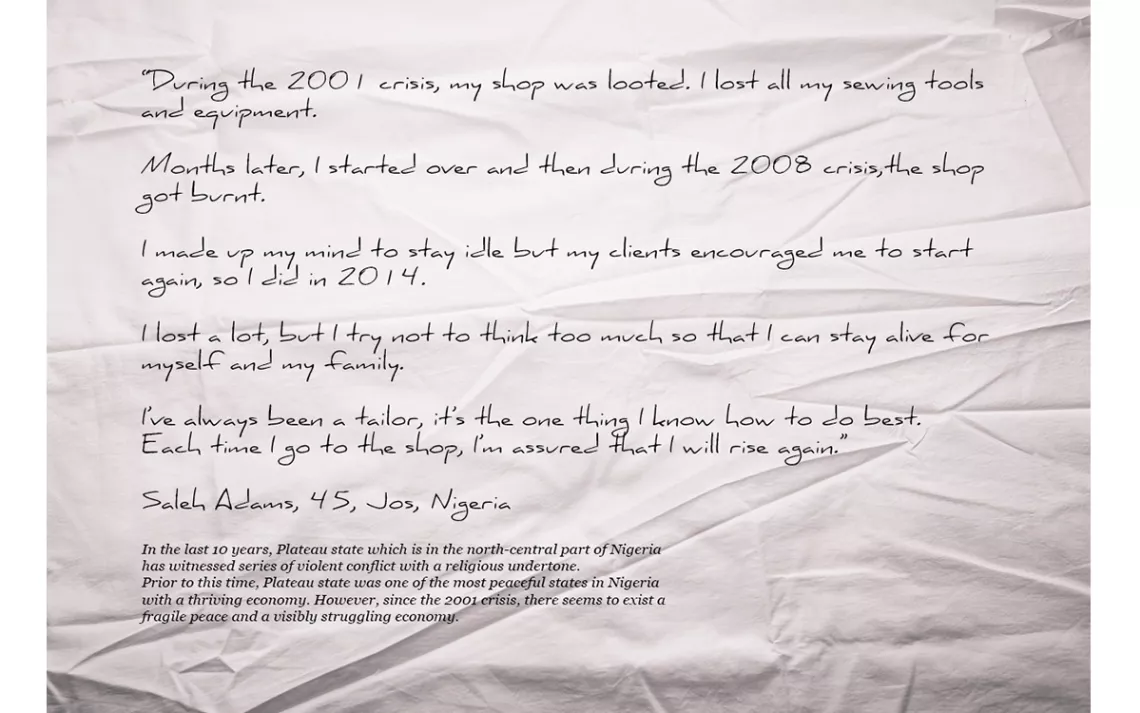 “During the 2001 crisis, my shop was looted. I lost all my sewing tools
and equipment.
Months later, I started over and then during the 2008 crisis,the shop
got burnt.
I made up my mind to stay idle but my clients encouraged me to start
again, so I did in 2014.
I lost a lot, but I try not to think too much so that I can stay alive for
myself and my family.
I've always been a tailor, it's the one thing I know how to do best.
Each time I go to the shop, I'm assured that I will rise again.”
Saleh Adams, 45, Jos, Nigeria
In the last 10 years, Plateau state which is in the north-central part of Nigeria
has witnessed series of violent conflict with a religious undertone.
Prior to this time, Plateau state was one of the most peaceful states in Nigeria
with a thriving economy. However, since the 2001 crisis, there seems to exist a
fragile peace and a visibly struggling economy.